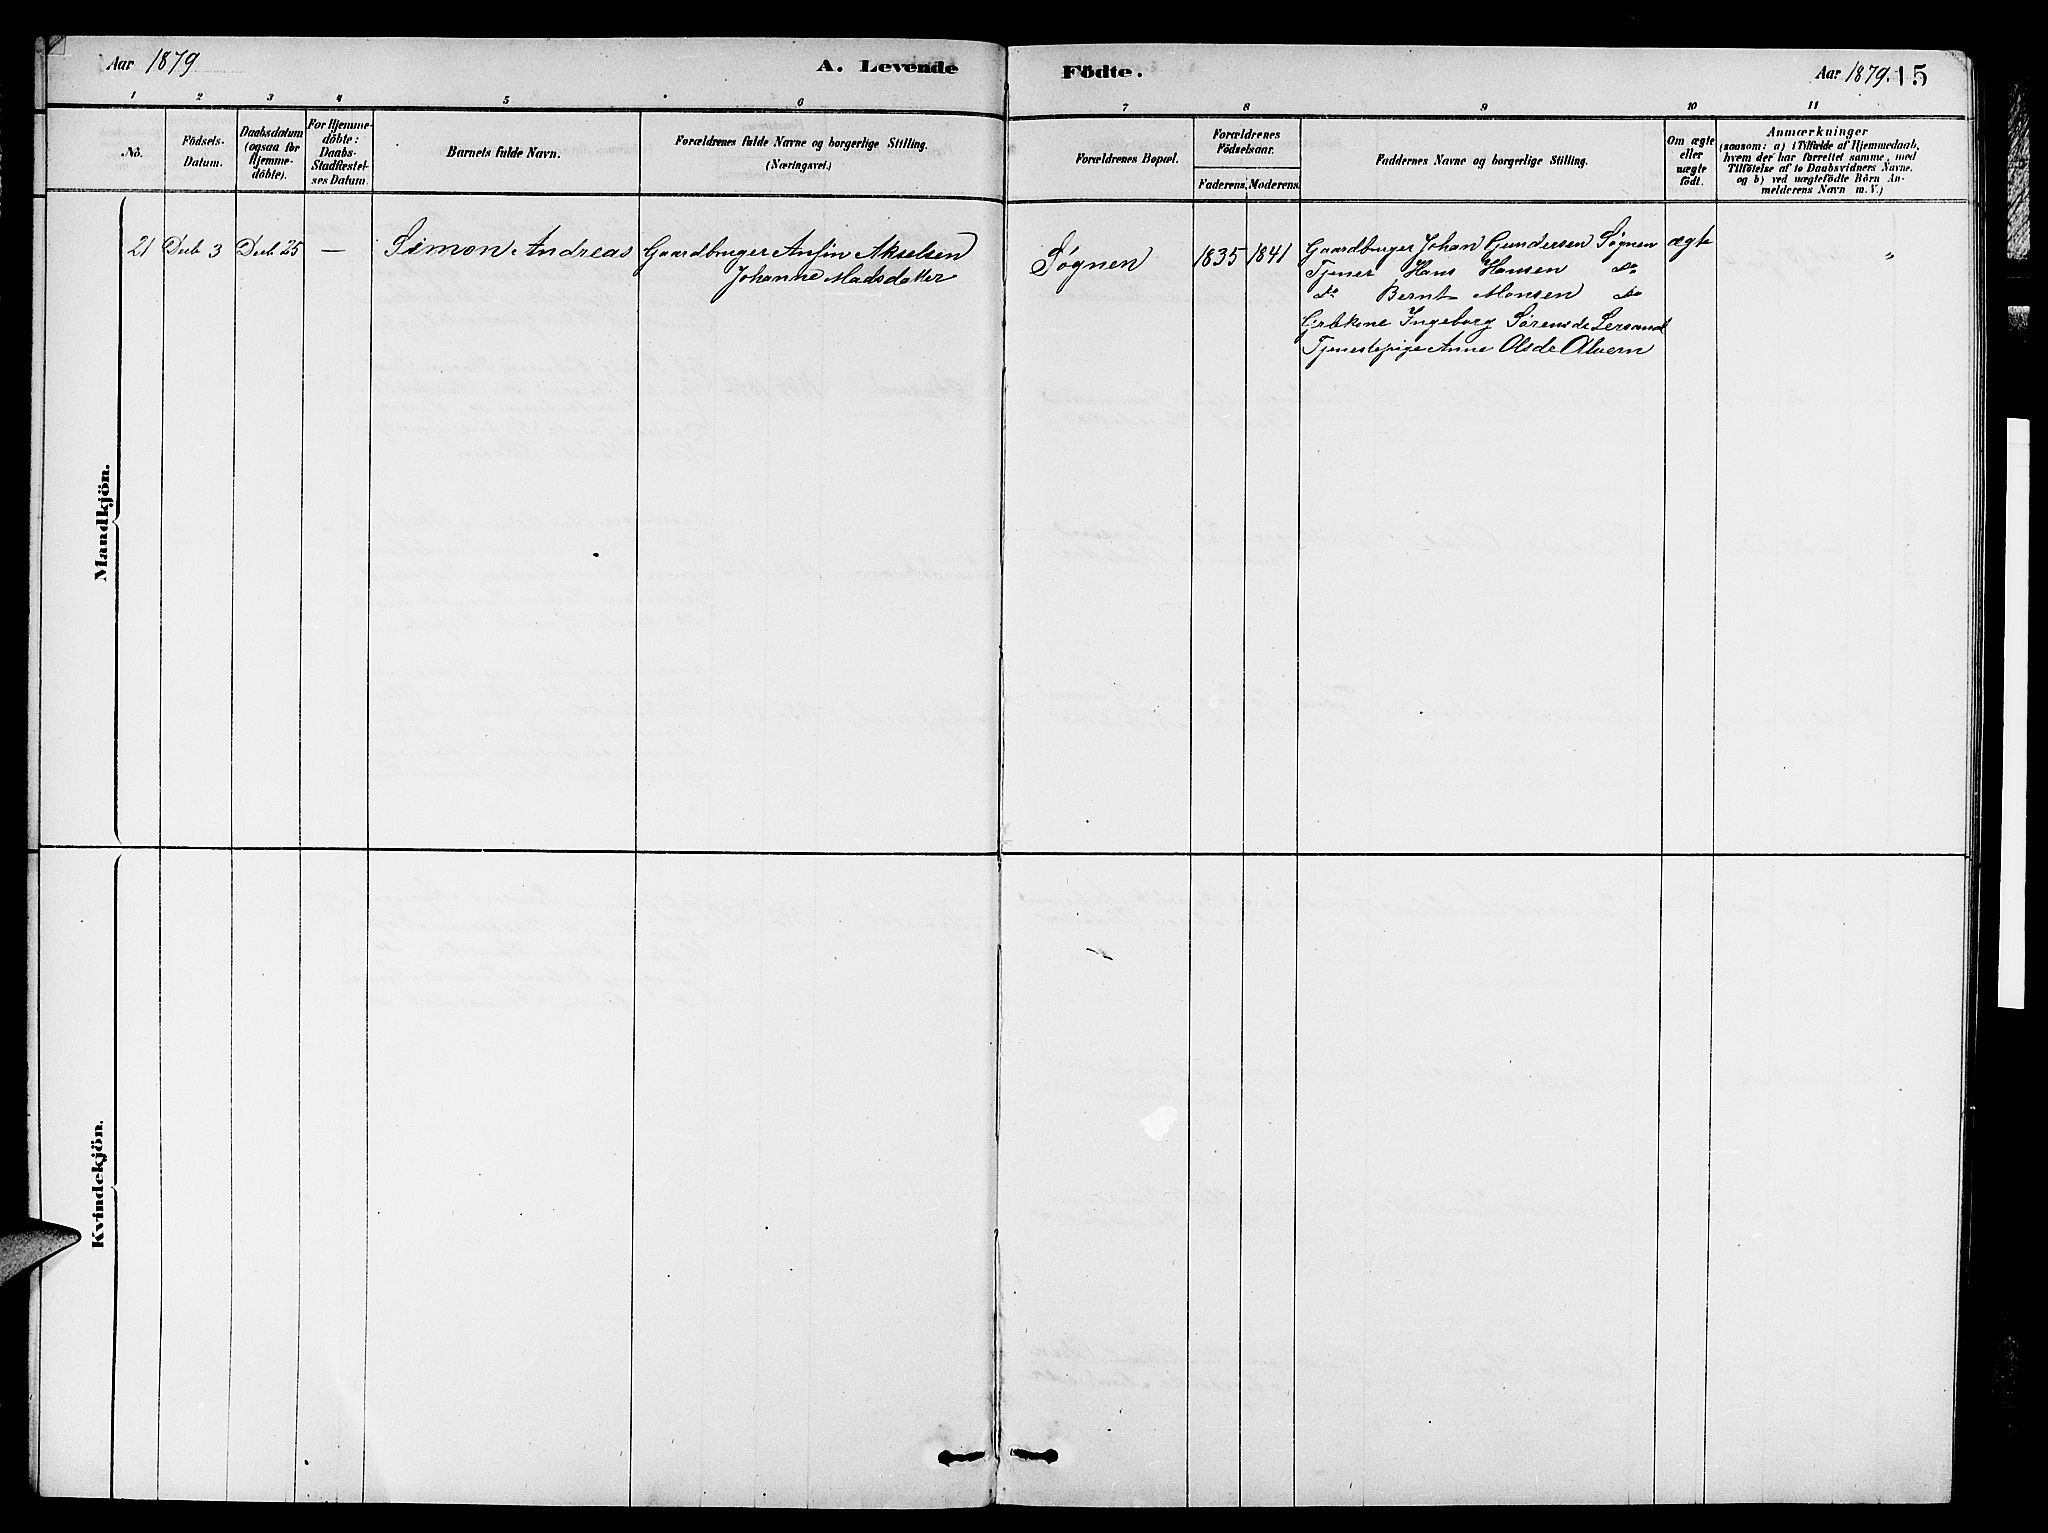 Aar 1879
A. Levende Födte.
Aar 1879. 15
1 2 3 4 5 6 7 8 9 10 11
No.
Födsels-
Datum.
Daabsdatum
(ogsaa for
Hjemme-
døbte).
For Hjemme-
döbte:
Daabs-
Stadfæstel-
ses Datum.
Barnets fulde Navn.
Forældrenes fulde Navne og borgerlige Stilling.
(Næringsvei.)
Forældrenes Bopæl.
Forældrenes
Födselsaar.
Faderens. Moderens.
Faddernes Navne og borgerlige Stilling.
Om ægte
eller
uægte
födt.
Anmærkninger
(saasom: a) i Tilfælde af Hjemmedaab,
hvem der har forrettet samme, med
Tilføielse af to Daabsvidners Navne.
og b) ved uægtefödte Börn An-
melderens Navn m. V.)
Mandkjön.
21 Decb 3 Decb. 25 — Simon Andreas
Gaardbruger Anfin Akselsen
Johanne Madsdatter
Søgnen
1835 1841
Gaardbruger Johan Gundersen Søgnen
Tjener Hans Hansen do
do Bernt Monsen do
Girtskone Ingeborg Sørensdr Lersand
Tjenestepige Anne Olsdr Alvern
ægte
"
Kvindekjön.